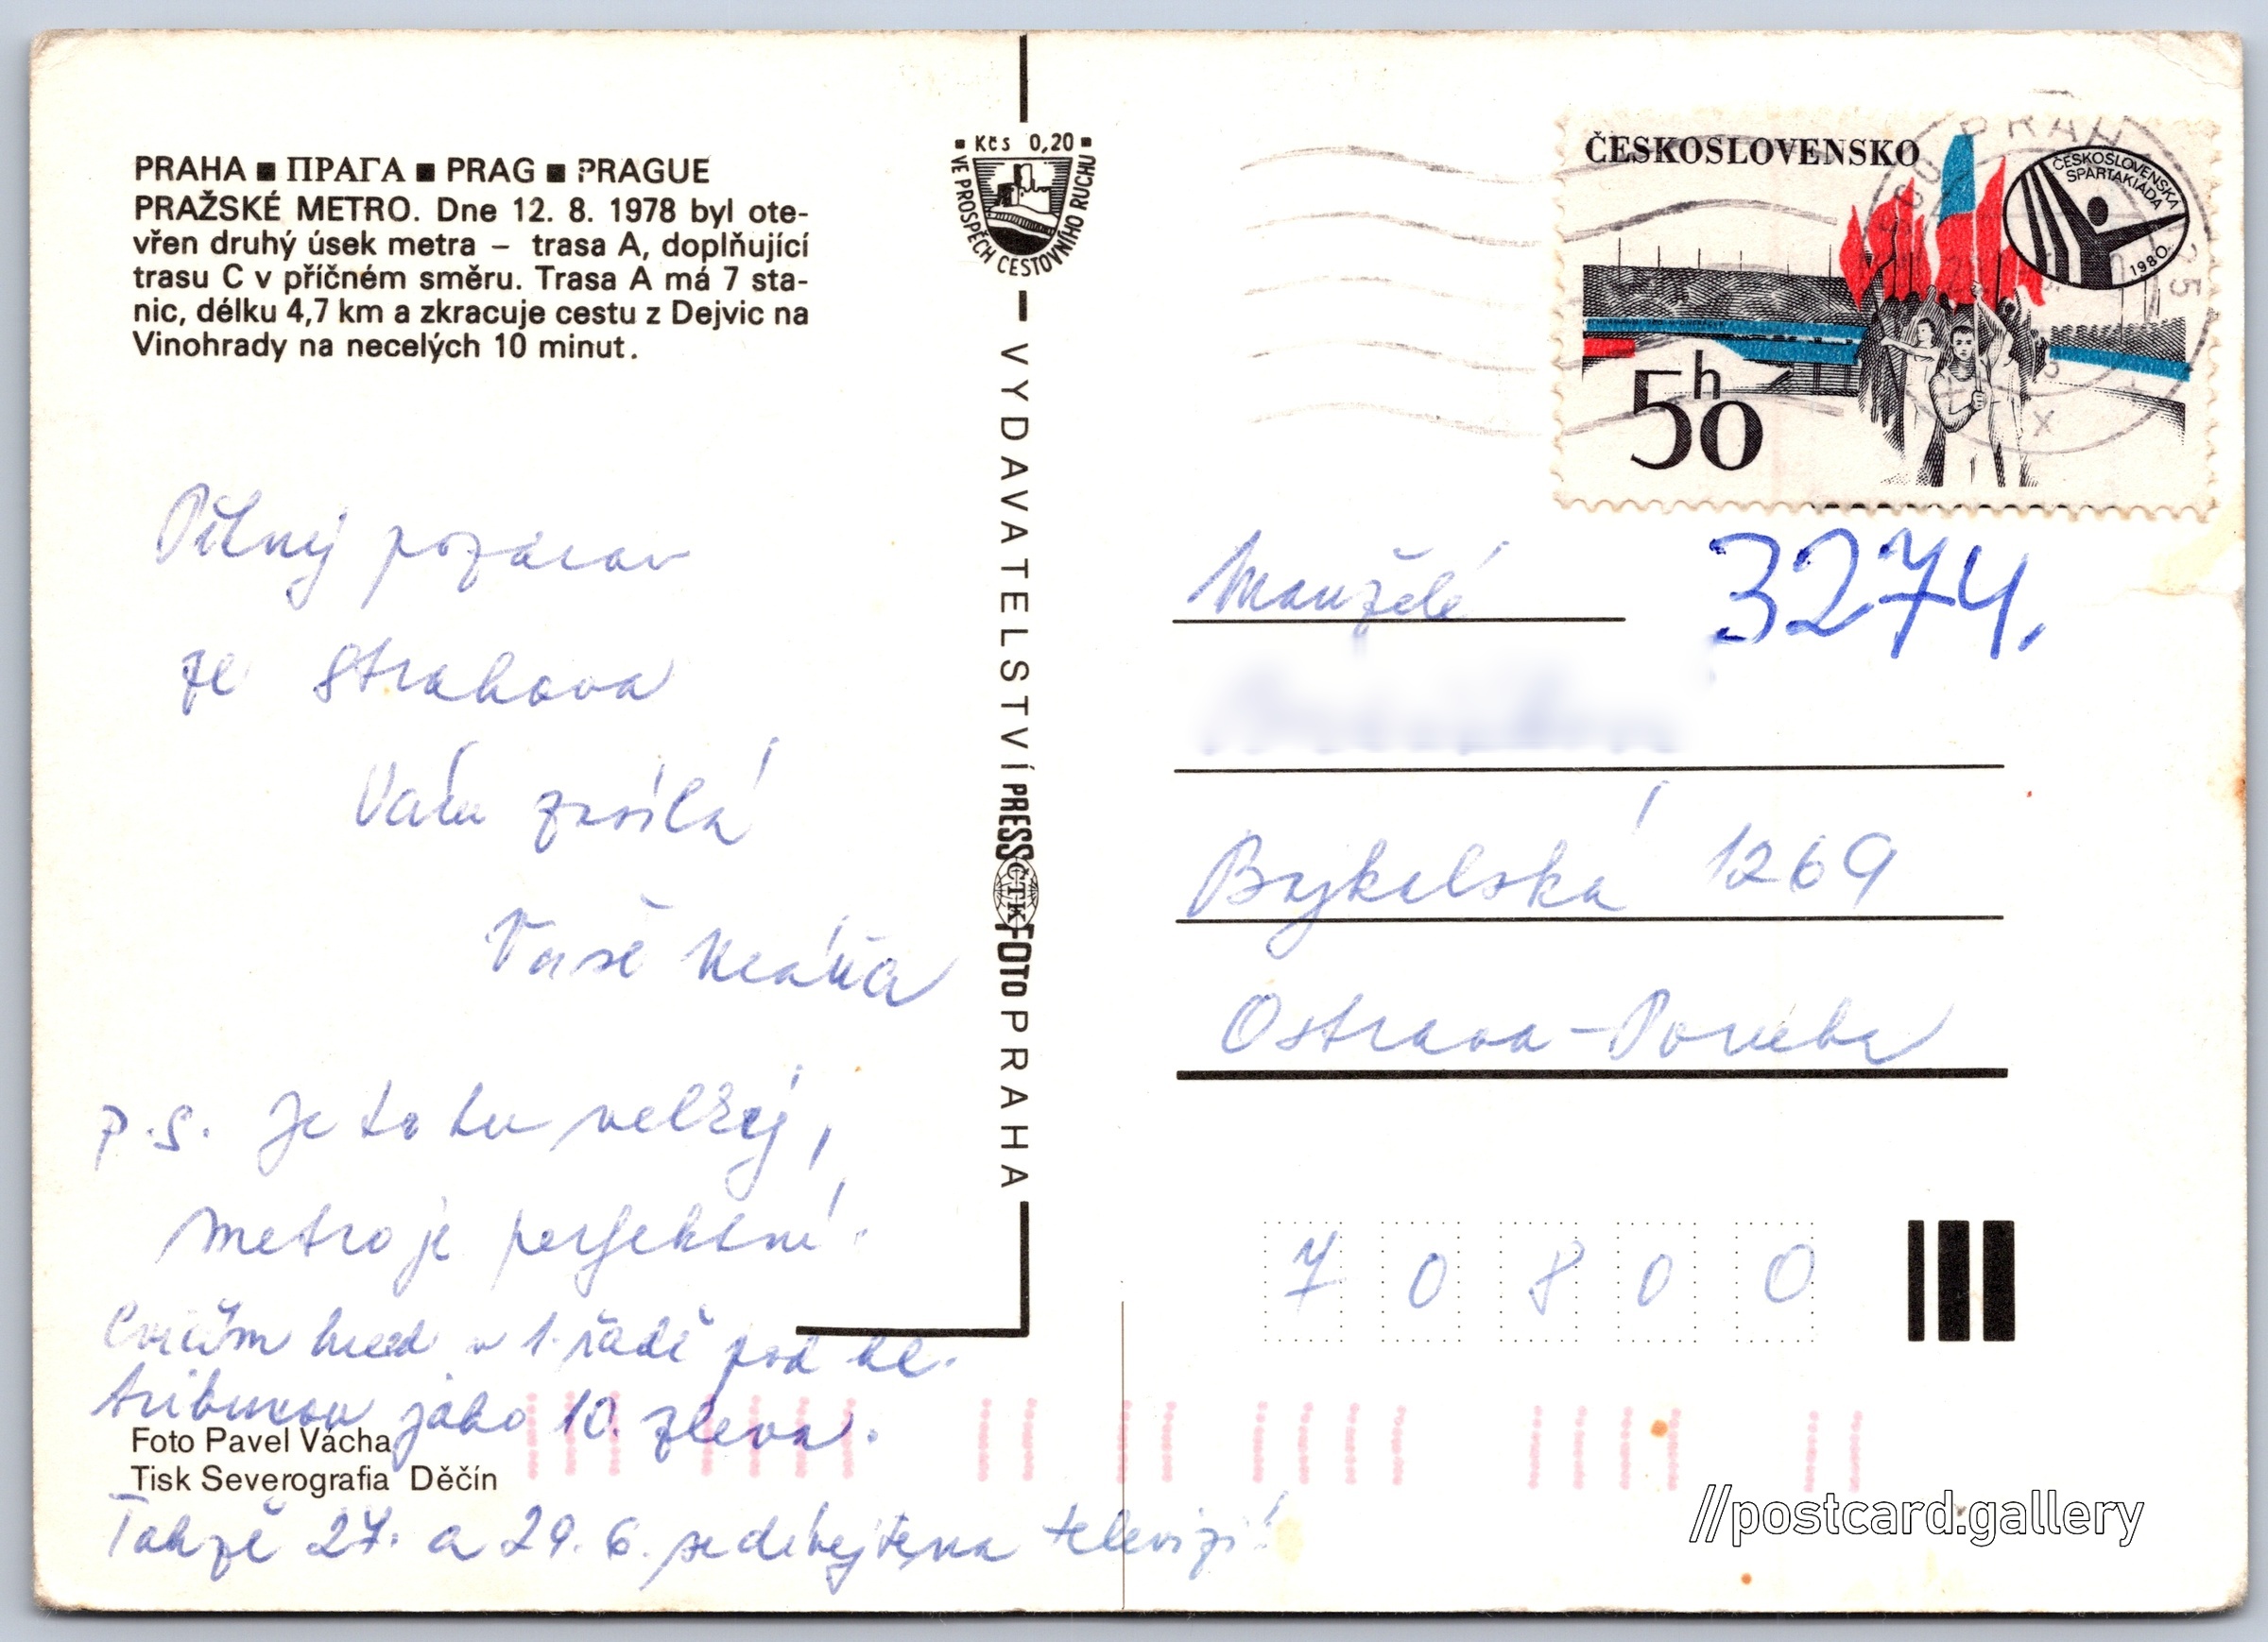 PRAHA ■ ПРАГА ■ PRAG ■ PRAGUE
PRAŽSKÉ METRO. Dne 12. 8. 1978 byl ote-
vřen druhý úsek metra – trasa A, doplňující
trasu C v příčném směru. Trasa A má 7 sta-
nic, délku 4,7 km a zkracuje cestu z Dejvic na
Vinohrady na necelých 10 minut.
Pilný pozdrav
ze Strahova
Vám zasílá
Vaše
p.s. Je to tu velký,
metro je perfektní.
Cvičím hned v 1. řadě pod hl.
tribunou jako 10. zleva.
Foto Pavel Vácha
Tisk Severografia Děčín
Takže 27. a 29. 6. se dívejte na televizi!
Kčs 0,20
VE PROSPĚCH CESTOVNÍHO RUCHU
VYDAVATELSTVÍ PRESSFOTO PRAHA
ČTK
ČESKOSLOVENSKO
ČESKOSLOVENSKÁ
SPARTAKIÁDA
1980
50h
3274.
Manželé
Bajkalská 1269
Ostrava-Poruba
70800
//postcard.gallery